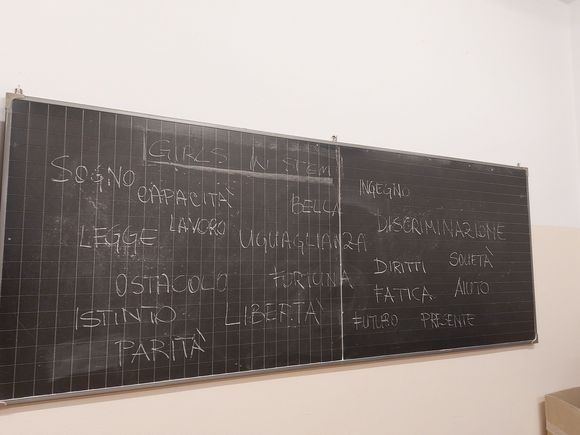 GIRLS IN STEM
SOGNO
CAPACITÀ
BELLA
LAVORO
LEGGE
UGUAGLIANZA
OSTACOLO
FORTUNA
ISTINTO
LIBERTÀ
PARITÀ
INGEGNO
DISCRIMINAZIONE
DIRITTI
SOCIETÀ
FATICA
AIUTO
FUTURO
PRESENTE